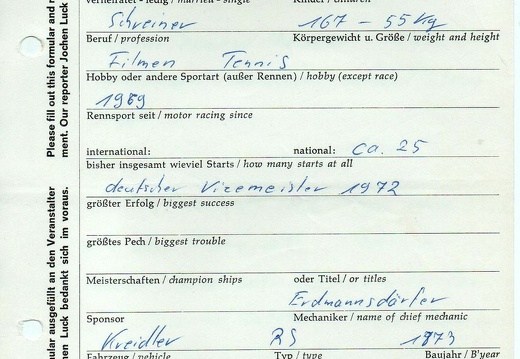 verheiratet - ledig / married - single Kinder / children
Schreiner 167 - 55 kg
Beruf / profession Körpergewicht u. Größe / weight and height
Filmen Tennis
Hobby oder andere Sportart (außer Rennen) / hobby (except race)
1969
Rennsport seit / motor racing since
international: national: ca. 25
bisher insgesamt wieviel Starts / how many starts at all
deutscher Vizemeister 1972
größter Erfolg / biggest success
größtes Pech / biggest trouble
Meisterschaften / champion ships oder Titel / or titles
Erdmannsdörfer
Sponsor Mechaniker / name of chief mechanic
Kreidler RS 1973
Fahrzeug / vehicle Typ / type Baujahr / B'year
Please fill out this formular and r
ment. Our reporter Jochen Luck
ular ausgefüllt an den Veranstalter
hen Luck bedankt sich im voraus.